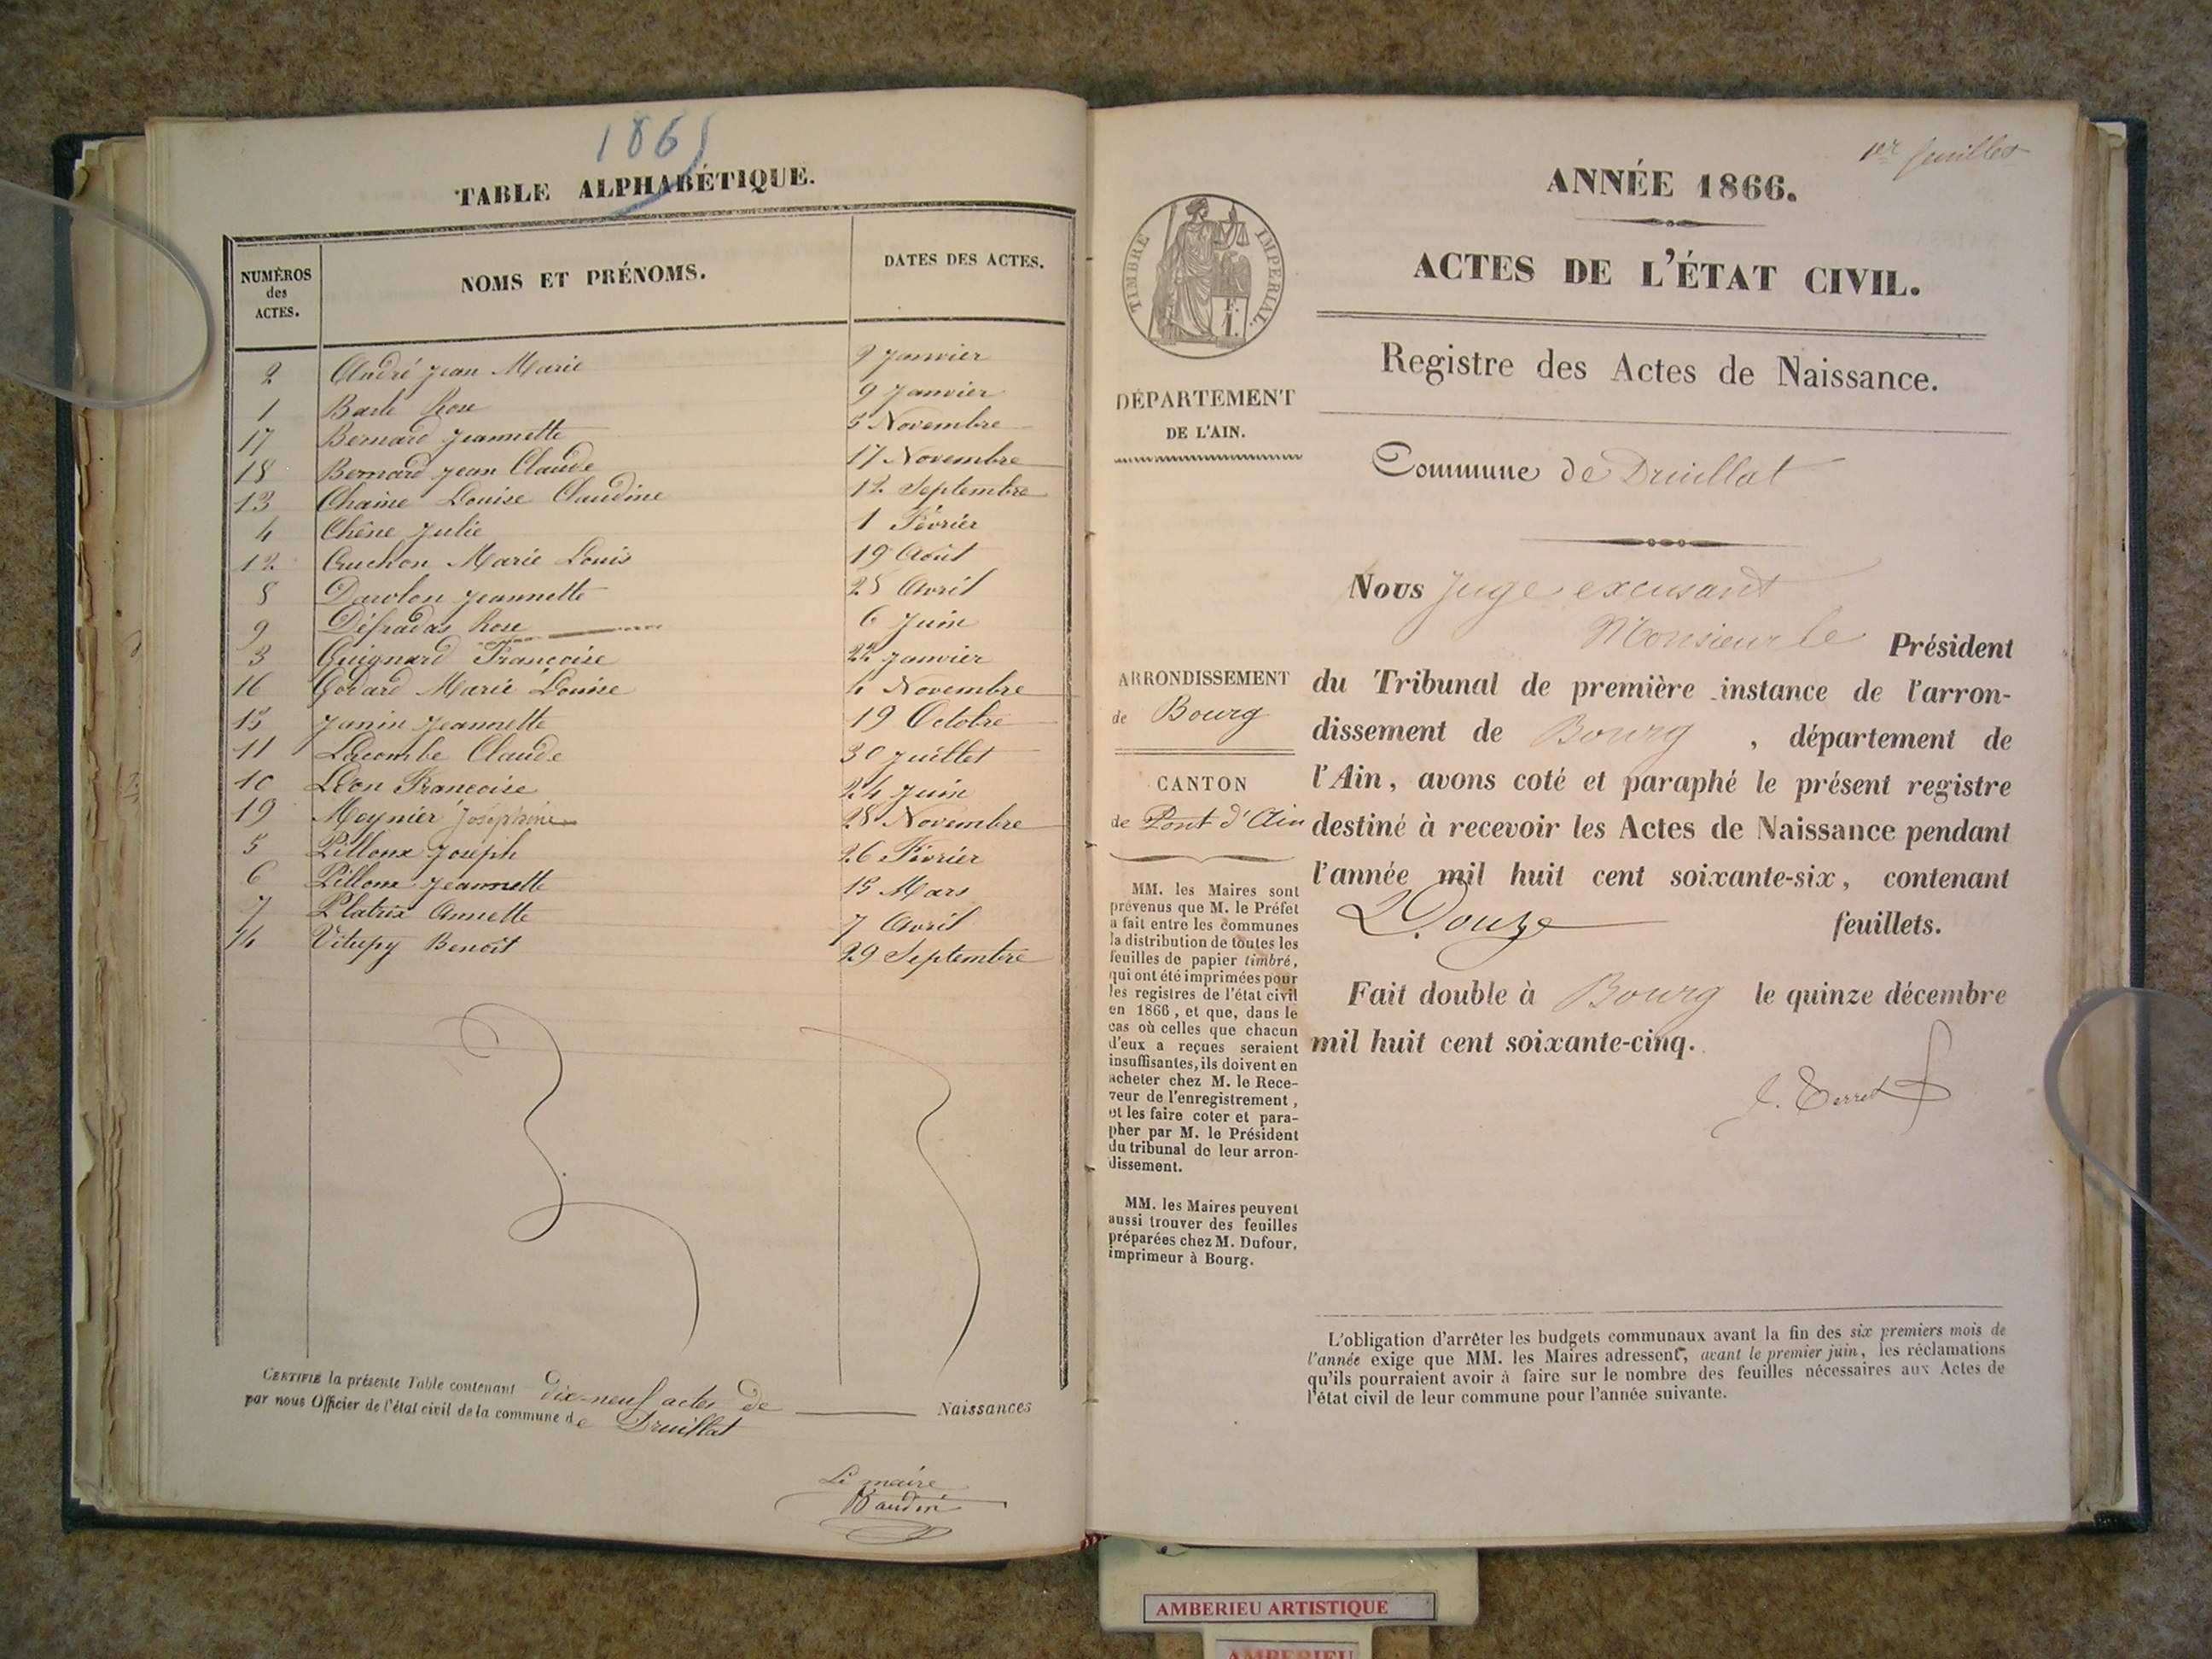 1865
TABLE ALPHABÉTIQUE.
NUMÉROS des ACTES. NOMS ET PRÉNOMS. DATES DES ACTES.
2 André Jean Marie 9 Janvier
1 Barle Rose 9 Janvier
17 Bernard Jeannette 5 Novembre
18 Bernard Jean Claude 17 Novembre
13 Chaine Louise Claudine 12 Septembre
4 Chêne Julie 1 Février
12 Cuchon Marie Louis 19 Août
8 Darolon Jeannette 25 Avril
9 Défradas Rose 6 Juin
3 Guignard Françoise 22 Janvier
16 Godard Marie Louise 4 Novembre
15 Janin Jeannette 19 Octobre
11 Lacombe Claude 30 Juillet
10 Léon Françoise 24 Juin
19 Moynier Joséphine 28 Novembre
5 Pilloux Joseph 26 Février
6 Pilloux Jeannette 15 Mars
7 Platrix Annette 7 Avril
14 Vitupy Benoît 29 Septembre
CERTIFIE la présente Table contenant dix-neuf actes de Naissances
par nous Officier de l'état civil de la commune de Druillat
Le maire
Baudin
1er feuillet
ANNÉE 1866.
ACTES DE L'ÉTAT CIVIL.
TIMBRE IMPERIAL.
Registre des Actes de Naissance.
DÉPARTEMENT
DE L'AIN.
Commune de Druillat
ARRONDISSEMENT
de Bourg
CANTON
de Pont d'Ain
MM. les Maires sont
prévenus que M. le Préfet
a fait entre les communes
la distribution de toutes les
feuilles de papier timbré,
qui ont été imprimées pour
les registres de l'état civil
en 1866, et que, dans le
cas où celles que chacun
d'eux a reçues seraient
insuffisantes, ils doivent en
acheter chez M. le Rece-
veur de l'enregistrement,
et les faire coter et para-
pher par M. le Président
du tribunal de leur arron-
dissement.
MM. les Maires peuvent
aussi trouver des feuilles
préparées chez M. Dufour,
imprimeur à Bourg.
Nous Juge excusant
Monsieur le Président
du Tribunal de première instance de l'arron-
dissement de Bourg, département de
l'Ain, avons coté et paraphé le présent registre
destiné à recevoir les Actes de Naissance pendant
l'année mil huit cent soixante-six, contenant
Douze feuillets.
Fait double à Bourg le quinze décembre
mil huit cent soixante-cinq.
L'obligation d'arrêter les budgets communaux avant la fin des six premiers mois de
l'année exige que MM. les Maires adressent, avant le premier juin, les réclamations
qu'ils pourraient avoir à faire sur le nombre des feuilles nécessaires aux Actes de
l'état civil de leur commune pour l'année suivante.
AMBERIEU ARTISTIQUE
AMBERIEU